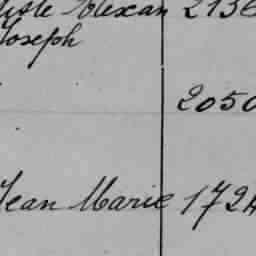 Alexan 213
Joseph
2050
Jean Marie 172